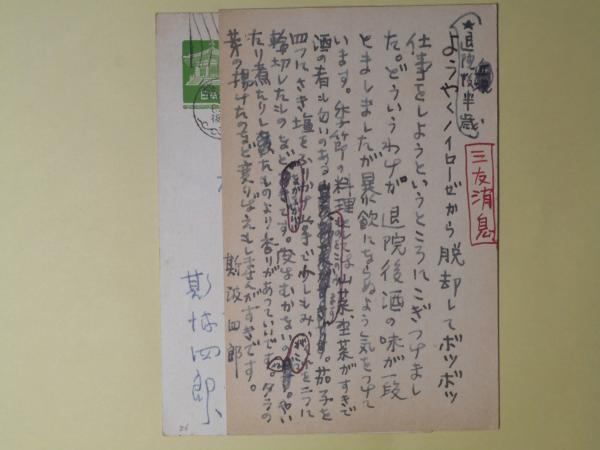 三友消息
★退院後半歳
ようやくノイローゼから脱却してボツボツ
仕事をしようというところにこぎつけまし
た。どういうわけか退院後酒の味が一段
とましましたが暴飲にならぬよう気をつけて
います。季節の料理としては山菜、生菜がすきで
酒の肴も匂いのある
茄子を
四つにさき塩をふりかけ
少しもみ
二つに
輪切したものなど
皮はむかない。
やい
たり煮たりしたものより香りがあっていいです。タラの
芽の揚げたのなど変りばえもしませんがすきです。
斯波四郎
斯波四郎